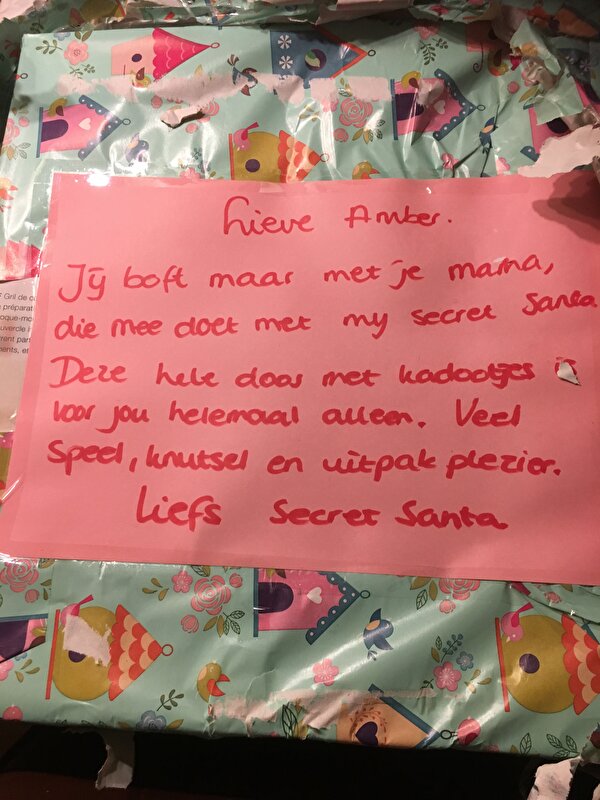 Lieve Amber.
Jij boft maar met je mama,
die mee doet met my secret Santa
Deze hele doos met kadootjes
voor jou helemaal alleen. Veel
speel, knutsel en uitpak plezier.
Liefs Secret Santa
Gril de
préparat
oque-mo
uvercle
rrent par
pants, et